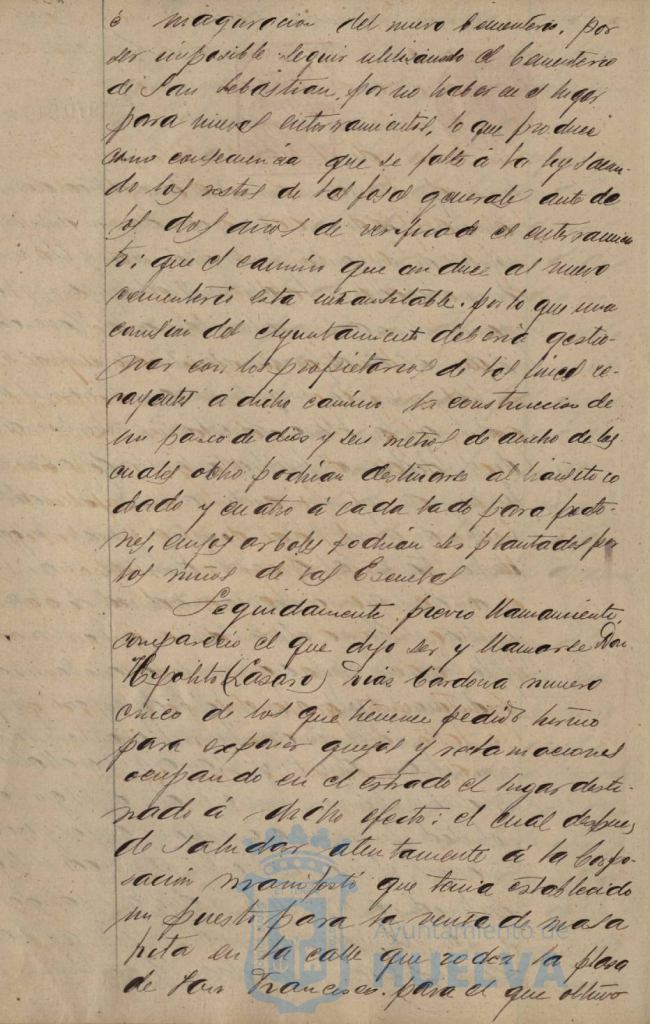 é inaguracion del nuevo Cementerio, por
ser imposible seguir utilizando el Cementerio
de San Sebastian, por no haber en él lugar
para nuevos enterramientos, lo que produce
como consecuencia que se falte á la ley sacan-
do los restos de las fosas generales antes de
los dos años de verificado el enterramien-
to; que el camino que conduce al nuevo
cementerio esta intransitable, por lo que una
comision del Ayuntamiento deberia gestio-
nar con los propietarios de las fincas re-
cayentes á dicho camino la construccion de
un paseo de diez y seis metros de ancho de los
cuales ocho podrian destinarse al tránsito ro
dado y cuatro á cada lado para peato-
nes, cuyos arboles podrian ser plantados por
los niños de las Escuelas
Seguidamente, previo llamamiento,
compareció el que dijo ser y llamarse Don
Hipolito (Lasaro) Dias Cardona numero
cinco de los que tienen pedido turno
para exponer quejas y reclamaciones
ocupando en el estrado el lugar desti-
nado á dicho efecto; el cual despues
de saludar atentamente á la Corpo-
racion manifestó que tenia establecido
un puesto para la venta de masa
frita en la calle que rodea la plaza
de San Francisco, para el que obtuvo
Ayuntamiento de
HUELVA